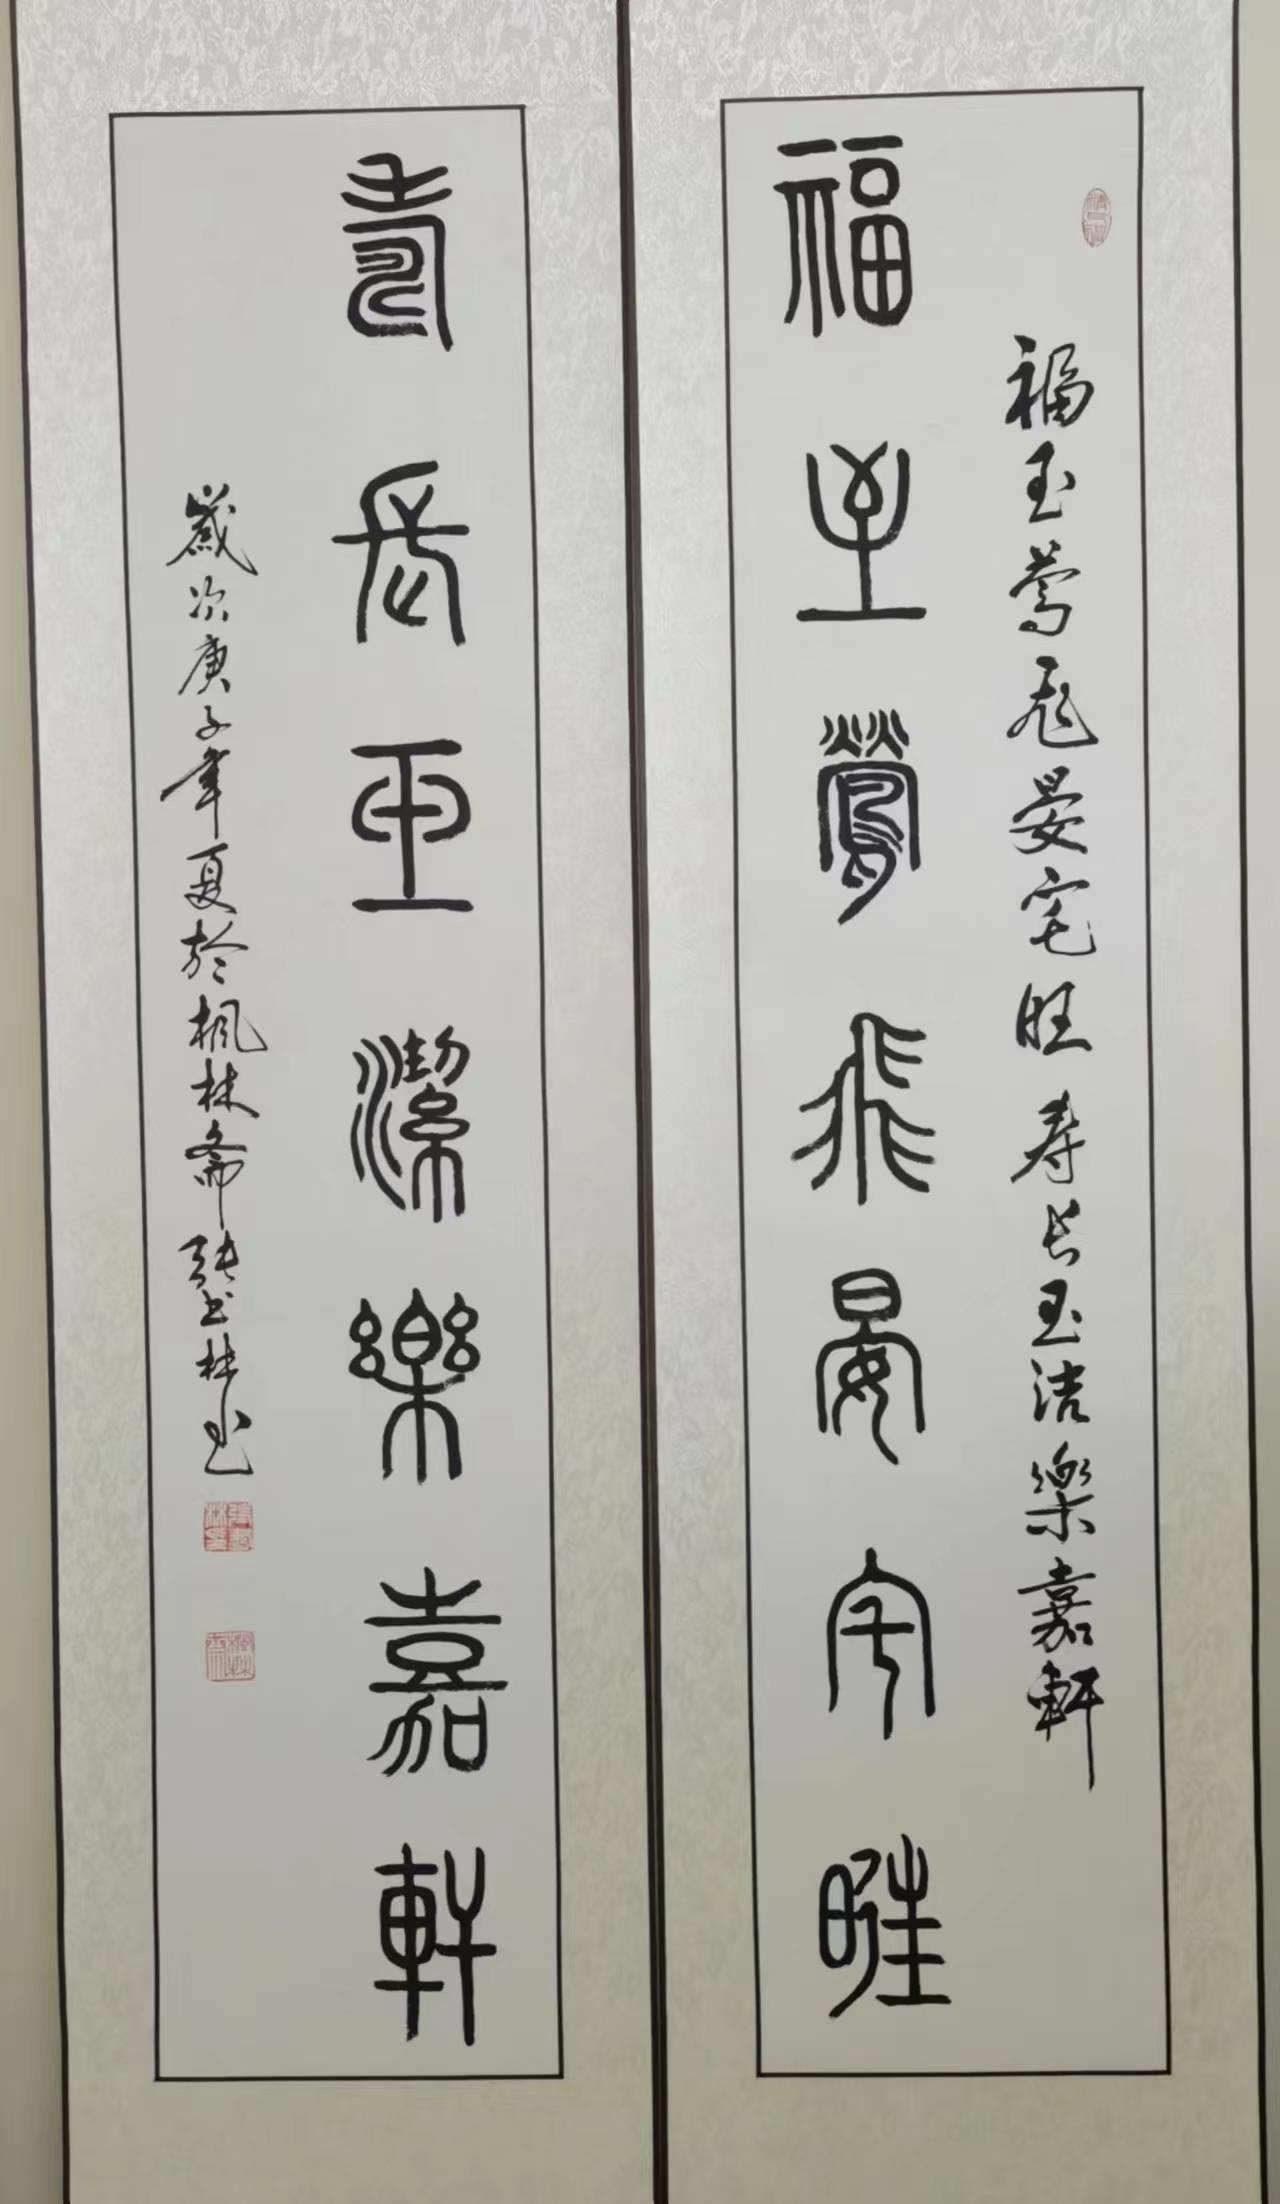 福至莺飛晏宅旺寿长玉洁樂嘉軒
福至鶯飛晏宅旺
壽長玉潔樂嘉軒
歲次庚子年夏於楓林斋張書林书